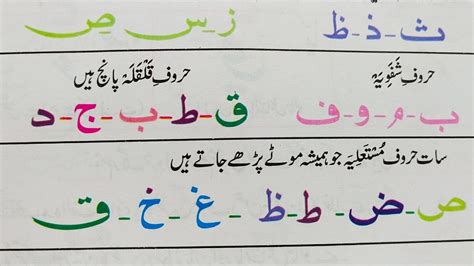 ث - ذ - ظ
ز س ص
حروف شَفَوِیَہ
ب - م - و - ف
حروف قَلْقَلَہ پانچ ہیں
ق - ط - ب - ج - د
سات حروف مُسْتَعْلِیَہ جو ہمیشہ موٹے پڑھے جاتے ہیں
ص - ض - ط - ظ - غ - خ - ق